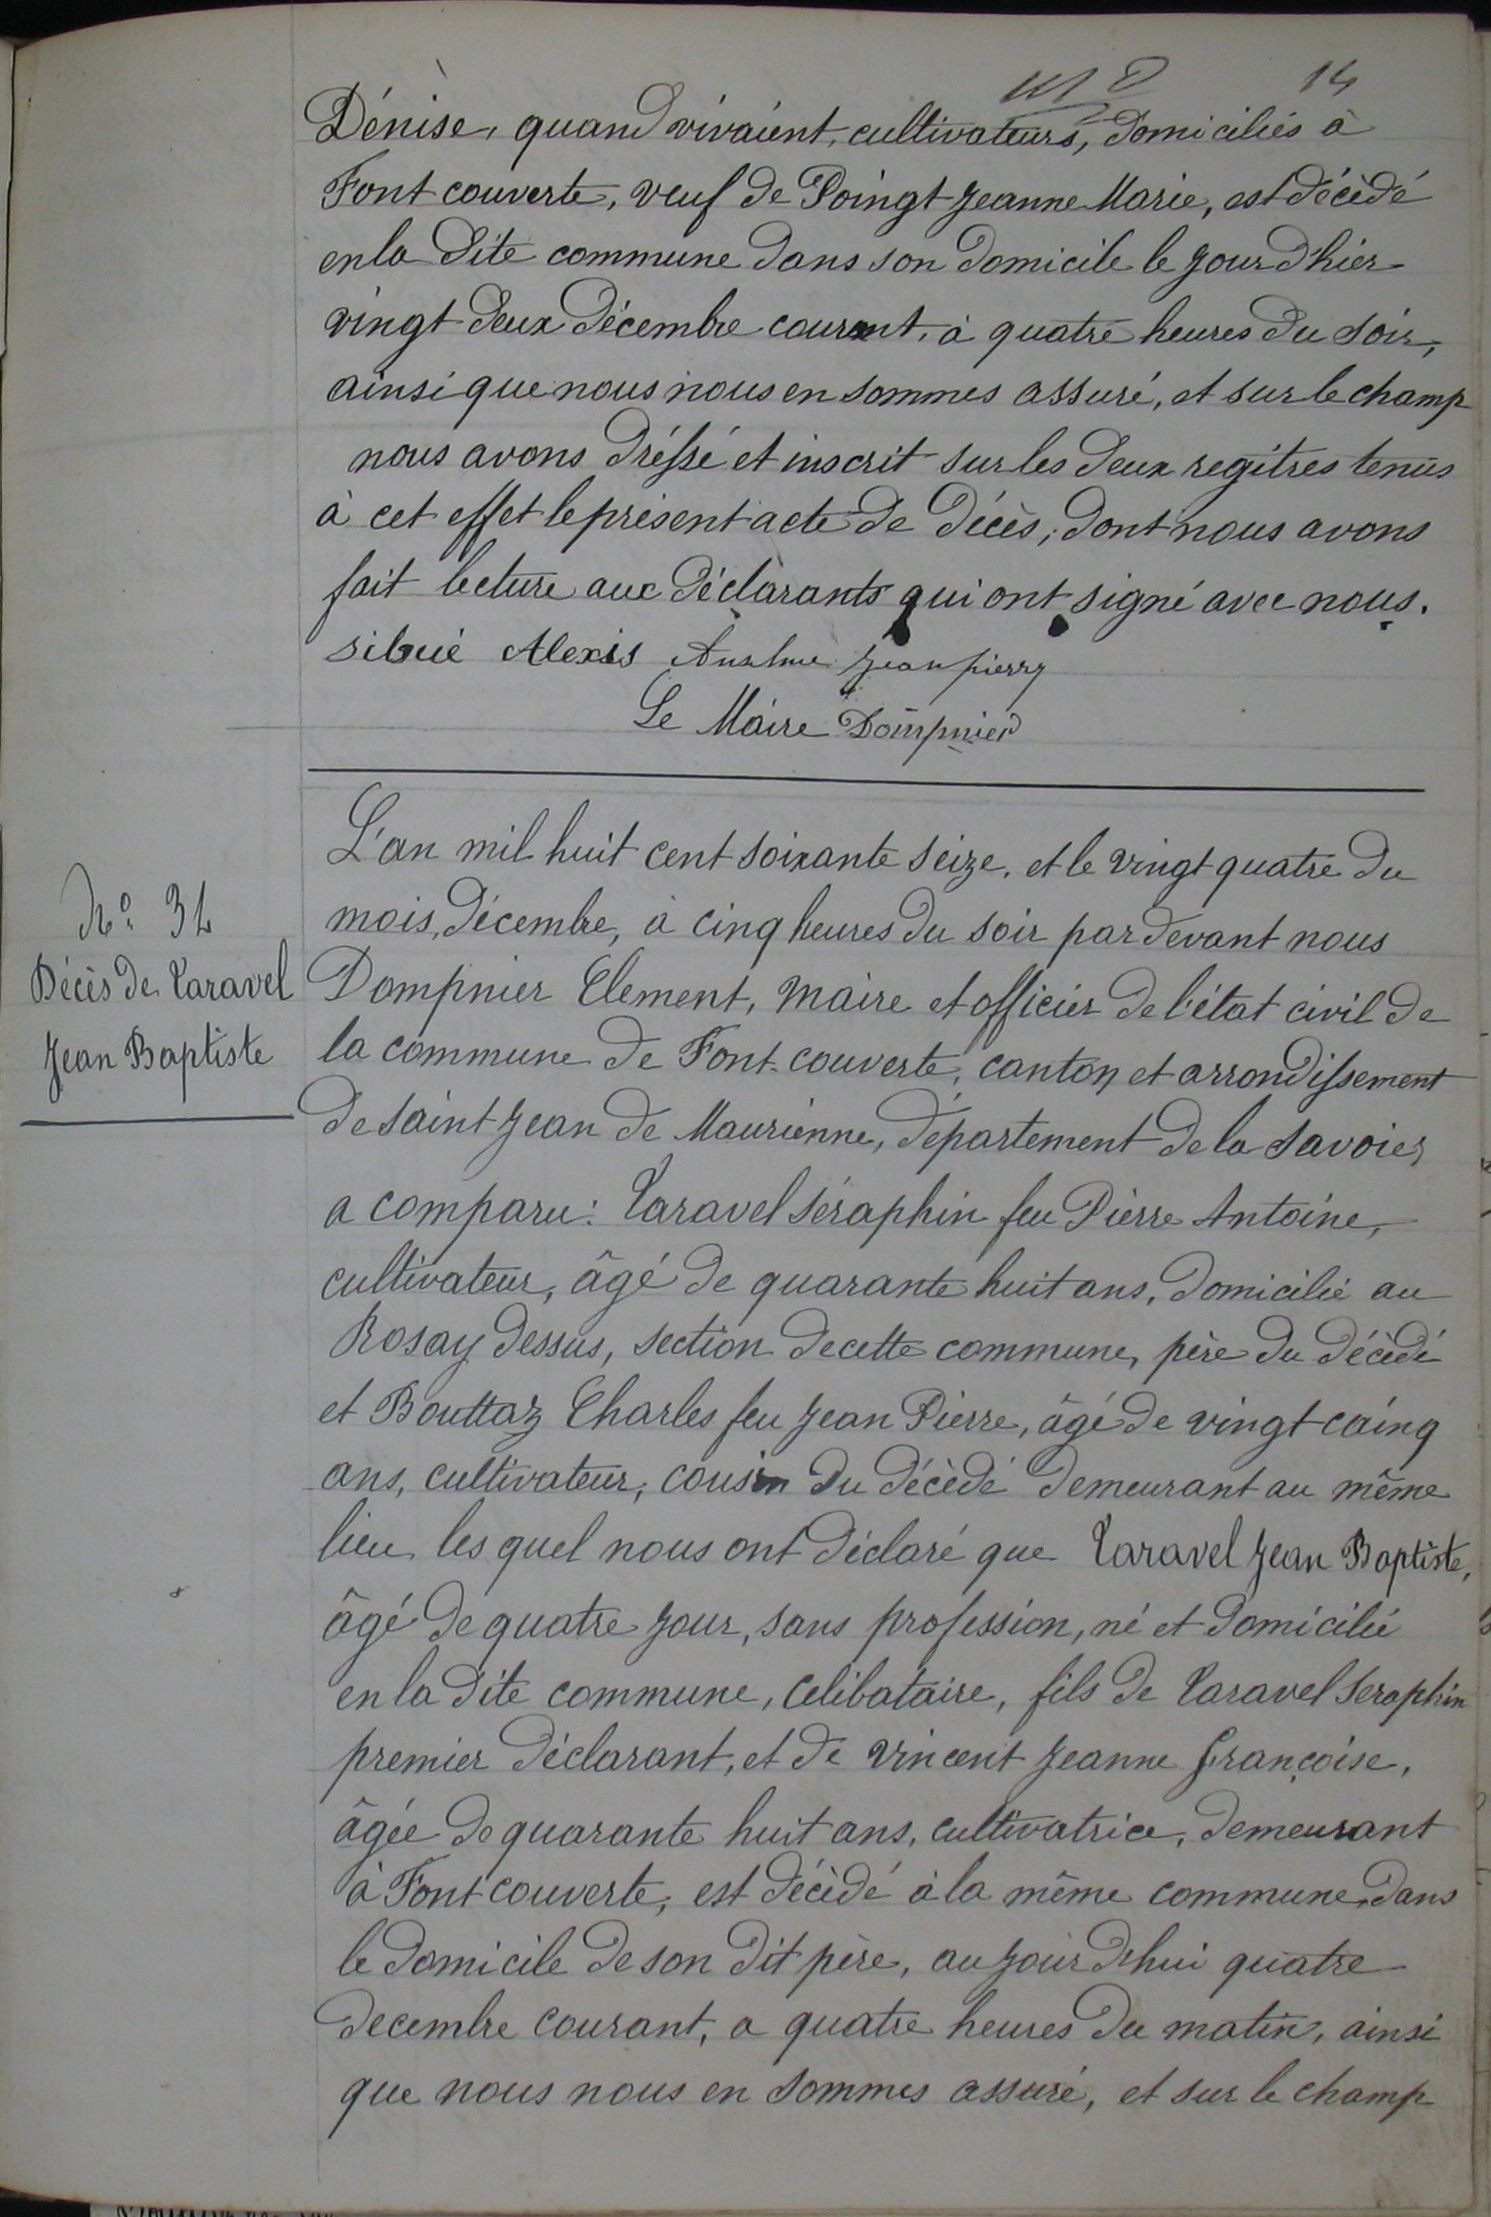 14
Dénise, quand vivaient, cultivateurs, domiciliés à
Font couverte, veuf de Poingt Jeanne Marie, est décèdé
en la dite commune dans son domicile le jour d'hier
vingt deux décembre courant, à quatre heures du soir,
ainsi que nous nous en sommes assuré, et sur le champ
nous avons dréssé et inscrit sur les deux regitres tenus
à cet effet le présent acte de décès, dont nous avons
fait lecture aux déclarants qui ont signé avec nous.
sibué Alexis Anselme jean pierre
Le Maire Dompnier
L'an mil huit cent soixante seize, et le vingt quatre du
mois, décembre, à cinq heures du soir par devant nous
Nº 34
Décès de Taravel
Jean Baptiste
Dompnier Clement, maire et officier de l'état civil de
la commune de Font-couverte, canton et arrondissement
de saint Jean de Maurienne, département de la Savoie,
a comparu: Taravel séraphin feu Pierre Antoine,
cultivateur, âgé de quarante huit ans, domicilié au
Rosay dessus, section de cette commune, père du décèdé
et Bouttaz Charles feu Jean Pierre, âgé de vingt cainq
ans, cultivateur, cousin du décèdé demeurant au même
lieu les quel nous ont déclaré que Taravel Jean Baptiste,
âgé de quatre jour, sans profession, né et domicilié
en la dite commune, celibataire, fils de Taravel Seraphin
premier déclarant, et de Vincent Jeanne françoise,
âgée de quarante huit ans, cultivatrice, demeurant
à Font couverte, est décèdé à la même commune, dans
le domicile de son dit père, au jour d'hui quatre
decembre courant, a quatre heures du matin, ainsi
que nous nous en sommes assuré, et sur le champ